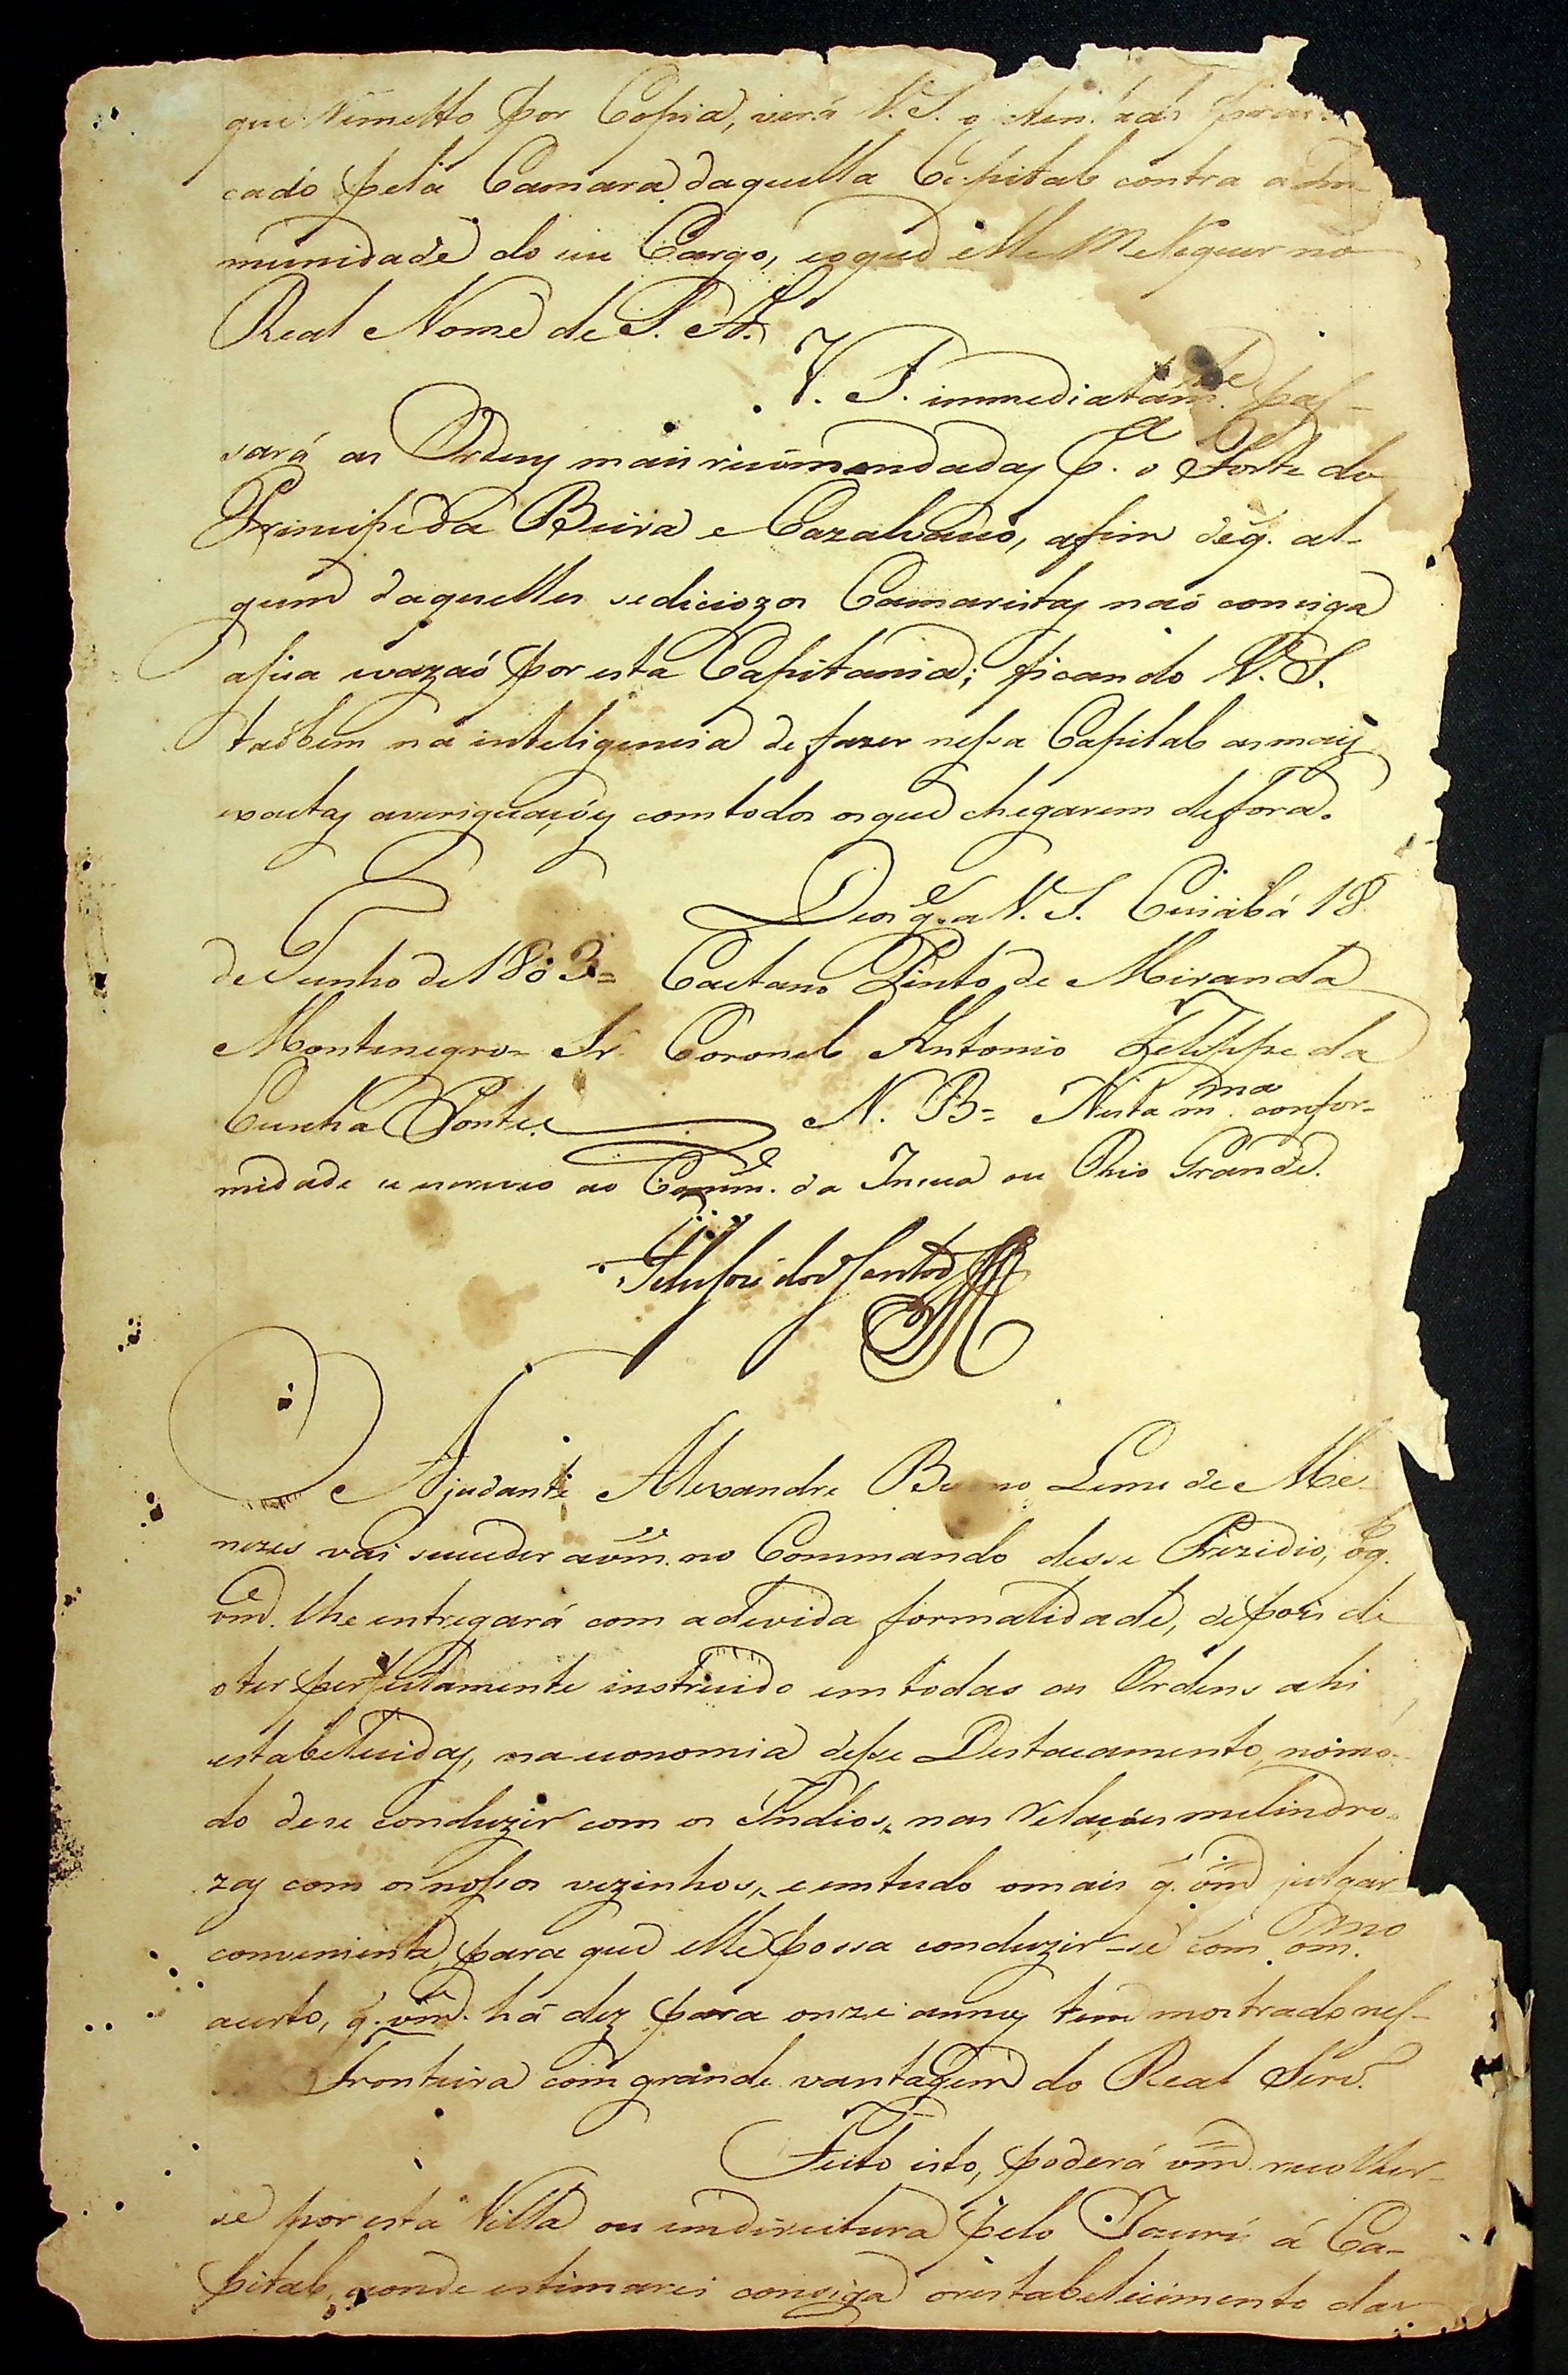 que Remetto por Copia, verá V. S. o
cado pela Camara daquella Capital contra a Im-
munidade do seu Cargo, eoque elle me Requer no
Real Nome de S. A.
V. S. immediatam.te pas-
sará as Ordens mais recommendadas p.a o Forte do
Principe da Beira e Cazalvasco, afim deq. al-
gum daquelles sediciozos Camaristas naó consiga
asua evazaó por esta Capitania; ficando V. S.
taobem na inteligencia de fazer nessa Capital as mais
exactas averiguaçóes com todos os que chegarem defora.
Deos g.e a V. S. Cuiabá 18
de Junho de 1803= Caetano Pinto de Miranda
Montenegro= Sr. Coronel Antonio Felippe da
Cunha Ponte. N. B= Nesta m.ma confor-
midade se escreveo ao Comm.e da Insua ou Rio Grande.
dos Santos
O Ajudante Alexandre Bueno Leme de Me-
nezes vai suceder avm.ce no Commando desse Prezidio, oq.l
vm.ce lhe entregará com adevida formalidade, depois de
oter perfeitamente instruido em todas as Ordens ahi
estabelecidas, na economia desse Destacamento, nomó-
do dese conduzir com os Indios, nas Relaçóes melindro-
zas com os nossos vezinhos, e em tudo omais q. vm.ce julgar
conveniente, para que elle possa conduzir-se com om.mo
acerto, q. vm.ce há dez para onze annos tem mostrado nes-
Fronteira com grande vantagem do Real Serv.o
Feito isto, poderá vm.ce recolher-
se por esta Villa ou emdireitura pelo Jaurú á Ca-
pital, aonde estimarei consiga orestabelecimento da